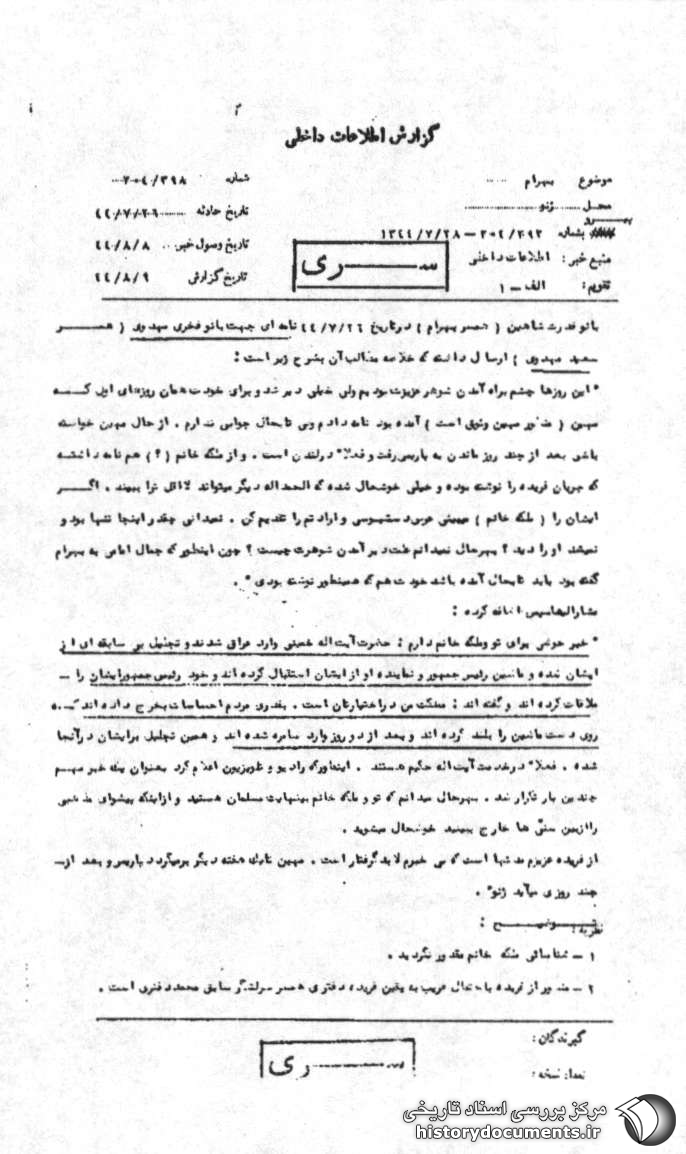 گزارش اطلاعات داخلی
موضوع بهرام
شماره ۲۰۴/۳۹۸
محل ژنو
تاریخ حادثه ۴۴/۷/۲۶
پیرو
بشماره ۲۰۴/۳۹۲ – ۱۳۴۴/۷/۲۸
تاریخ وصول خبر ۴۴/۸/۸
منبع خبر: اطلاعات داخلی
تاریخ گزارش ۴۴/۸/۹
تقویم: الف – ۱
ســـری
بانو قدرت شاهین (همسر بهرام) در تاریخ ۴۴/۷/۲۶ نامه ای جهت بانو فخری مهدوی (همسر
سعید مهدوی) ارسال داشته که خلاصه مطالب آن بشرح زیر است:
" این روزها چشم براه آمدن شوهر عزیزت بودیم ولی خیلی دیر شد و برای خودت همان روزهای اول کـــه
مهین (منظور مهین وثوق است) آمده بود نامه دادم ولی تابحال جوابی ندارم. از حال مهین خواسته
باشی بعد از چند روز ماندن به پاریس رفت و فعلا" در لندن است. و از ملکه خانم (؟) هم نامه داشتـه
که جریان فریده را نوشته بود و خیلی خوشحال شده که الحمداله دیگر میتواند لااقل ترا ببیند. اگـــر
ایشان را (ملکه خانم) میبینی عوض دستبوسی و ارادتم را تقدیم کن. نمیدانی چقدر اینجا تنها بود و
نمیشد او را دید؟ بهرحال نمیدانم علت دیر آمدن شوهرت چیست؟ چون اینطور که جمال امامی به بهرام
گفته بود باید تابحال آمده باشد خودت هم که همینطور نوشته بودی".
مشارالیها سپس اضافه کرده:
" خبر خوشی برای تو و ملکه خانم دارم: حضرت آیت اله خمینی وارد عراق شدند و تجلیل بی سابقه ای از
ایشان شده و ماشین رئیس جمهور و نماینده او از ایشان استقبال کرده اند و خود رئیس جمهور ایشان را –
ملاقات کرده اند و گفته اند: مملکت من در اختیارتان است. بقدری مردم احساسات بخرج داده اند کـــه
روی دست ماشین را بلند کرده اند و بعد از دو روز وارد سامره شده اند و همین تجلیل برایشان در آنجا
شده. فعلا" در خدمت آیت اله حکیم هستند. اینطور که رادیو و تلویزیون اعلام کرد بعنوان یک خبر مهـم
چندین بار تکرار شد. بهرحال میدانم که تو و ملکه خانم بینهایت مسلمان هستید و از اینکه پیشوای مذهبی
را ازبین سنّی ها خارج ببینید خوشحال میشوید.
از فریده عزیزم مدتها است که بی خبرم لابد گرفتار است. مهین تا یک هفته دیگر برمیگردد پاریس و بعد از–
چند روزی میآید ژنو".
نظریه:
۱ – شناسائی ملکه خانم مقدور نگردید.
۲ – منظور از فریده باحتمال قریب به یقین فریده دفتری همسر سرلشگر سابق محمد دفتری است.
گیرندگان:
ســـری
تعداد نسخه:
مرکز بررسی اسناد تاریخی
historydocuments.ir